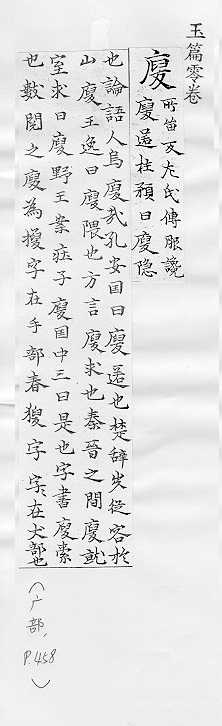 玉篇零卷
廋 所畄反左氏傳服讒
廋匿杜預曰廋隐
也論語人焉廋哉孔安国曰廋匿也楚辞步従容於
山廋王逸曰廋隈也方言廋求也秦晉之間廋就
室求曰廋野王案莊子廋国中三日是也字書廋索
也數閱之廋為搜字在手部春獀字〻在犬部也
(广部,
P.458
)